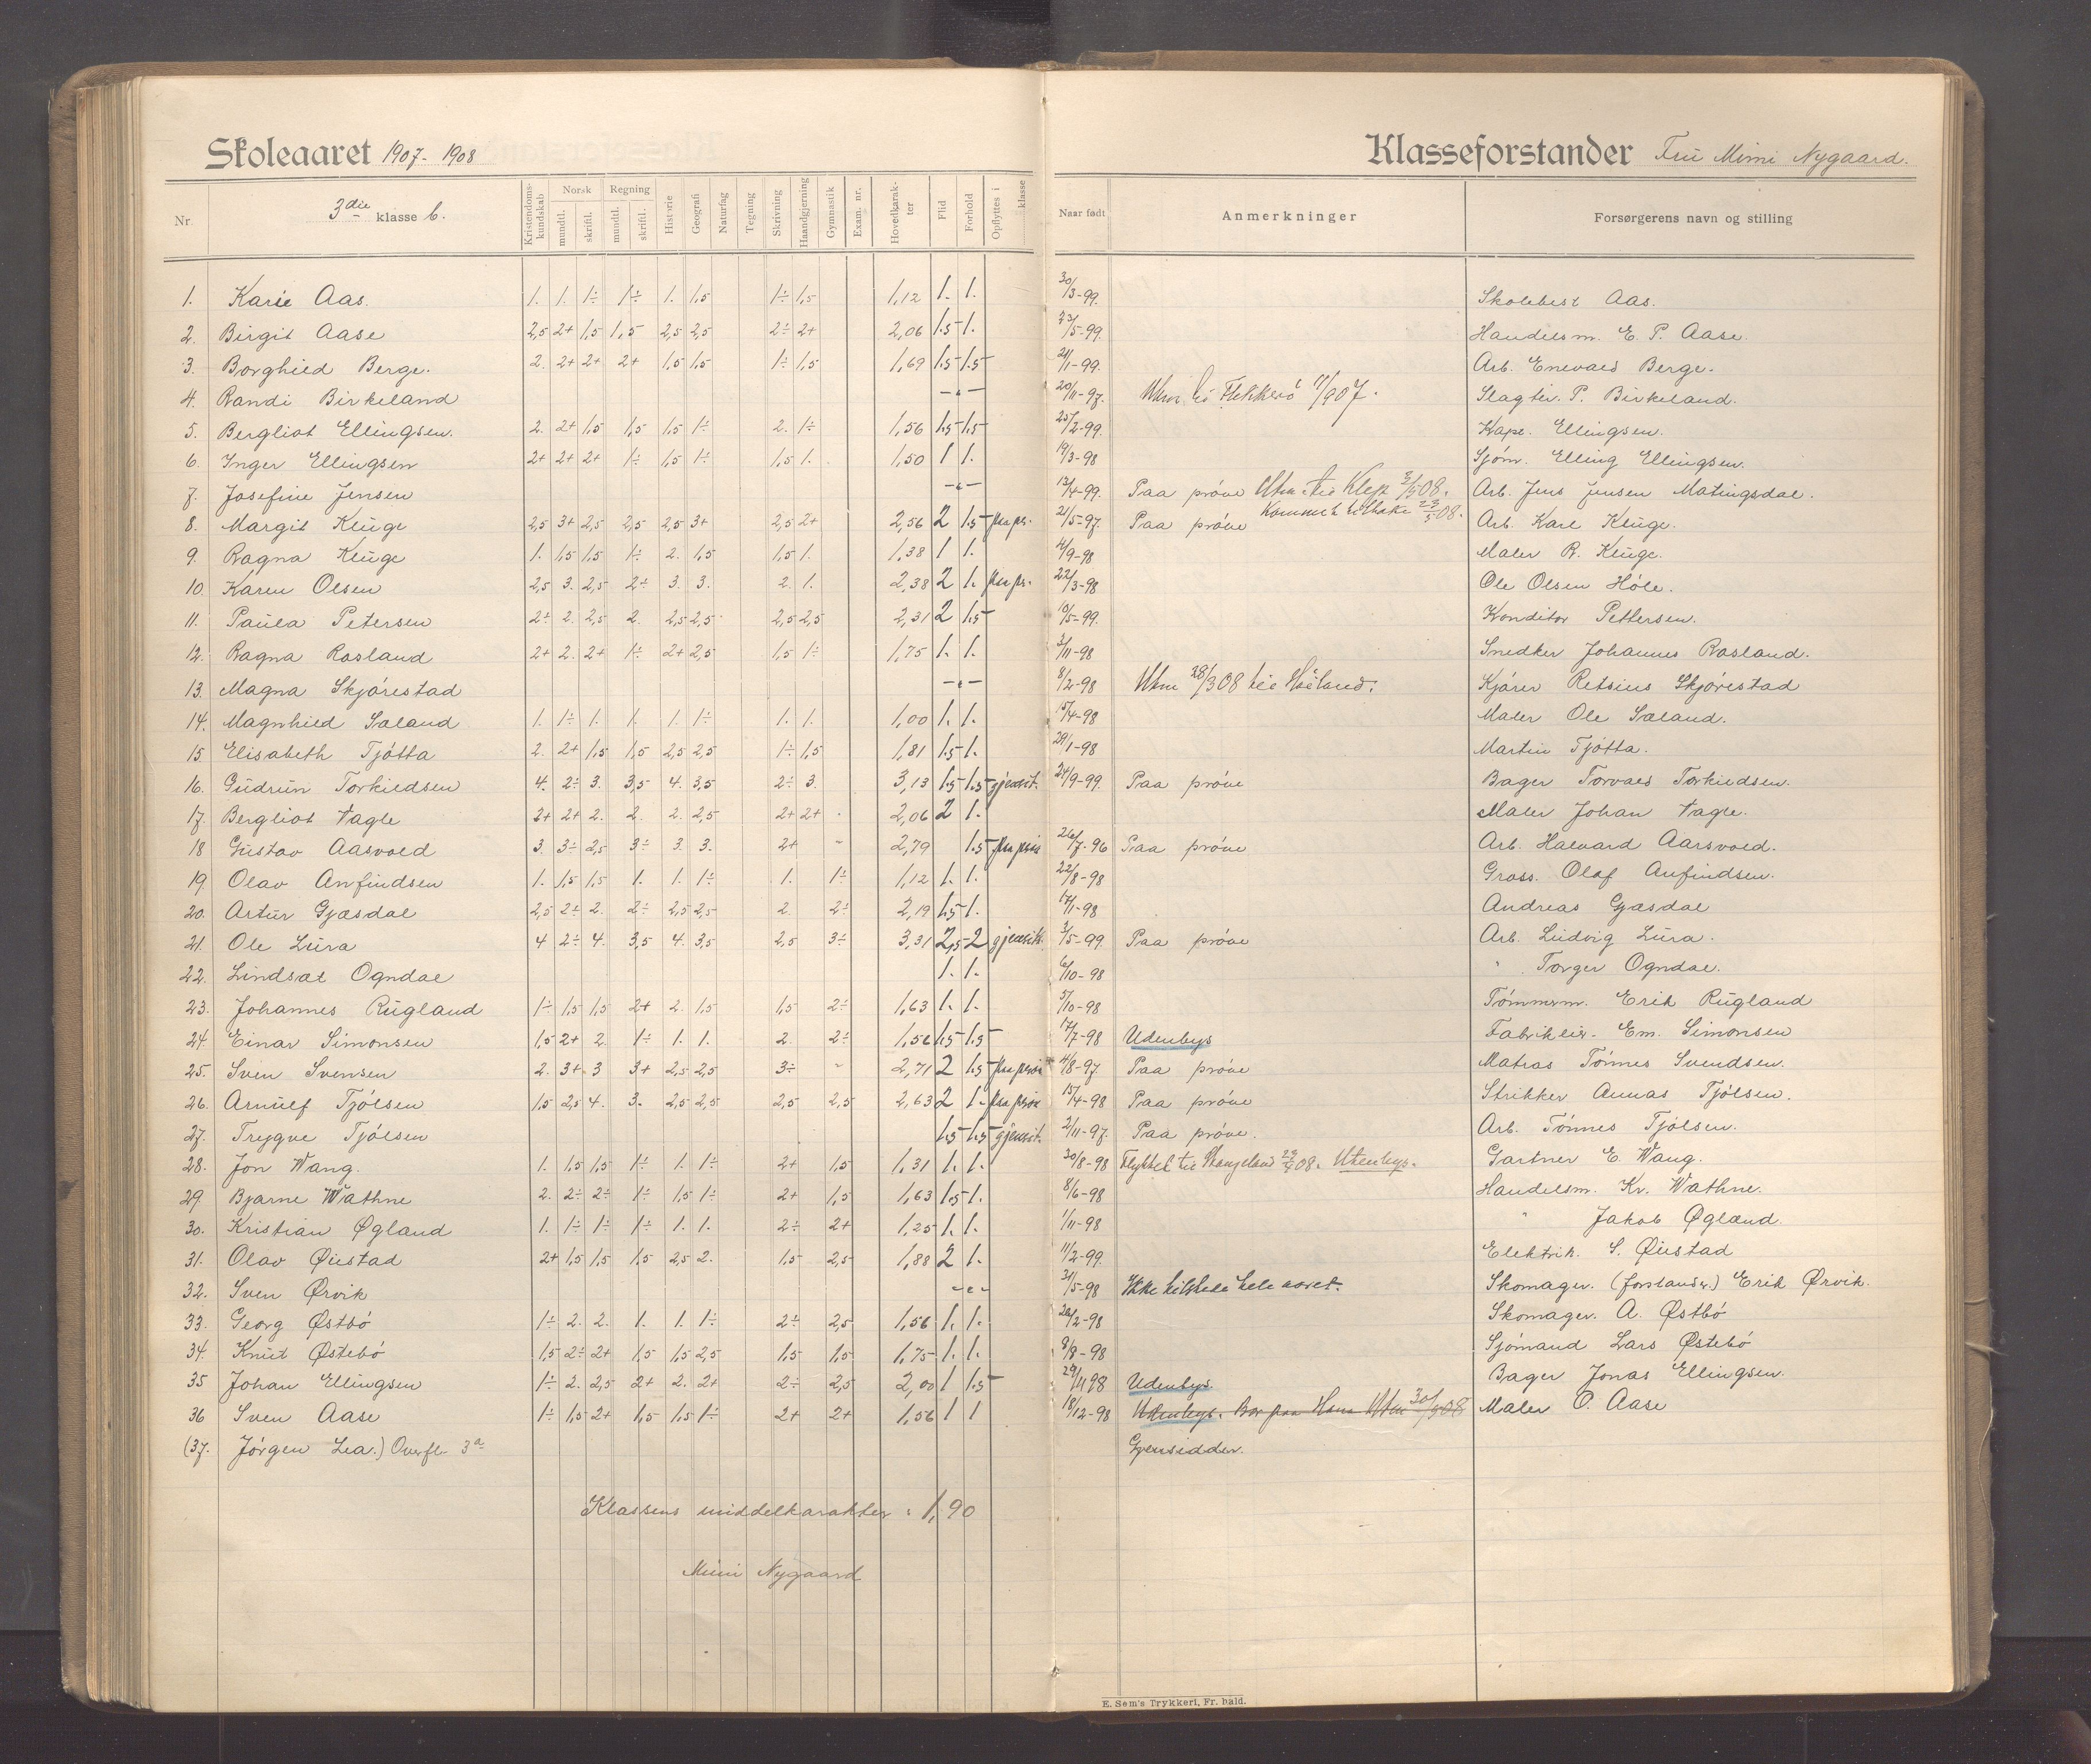 Skoleaaret 1907-1908
Klasseforstander Frü Mimi Nygaard.
Nr. 3die klasse b. Kristendomskundskab Norsk mundtl. skriftl. Regning mundtl. skriftl. Historie Geografi Naturfag Tegning Skrivning Haandgjerning Gymnastik Exam. nr. Hovedkarakter Flid Forhold Opflyttes i klasse Naar født Anmerkninger Forsørgerens navn og stilling
1. Karie Aas. 1. 1. 1÷ 1÷ 1. 1,5 1÷ 1,5 1,12 1. 1. 30/3-99. Skolebest Aas.
2. Birgit Aase 2,5 2+ 1,5 1,5 2,5 2,5 2÷ 2+ 2,06 1.5 1. 23/5-99. Handelsm. E. P. Aase.
3. Borghild Berge. 2. 2+ 2+ 2+ 1,5 1,5 1÷ 1,5 1,69 1.5 1.5 21/1-99. Arb. Enevald Berge.
4. Randi Birkeland -"- 20/11-97. Utm. til Flekkerö 11/907. Slagter. P. Birkeland.
5. Bergliot Ellingsen. 2. 2+ 1,5 1,5 1,5 1÷ 2. 1÷ 1,56 1.5 1.5 25/2-99. Kapt. Ellingsen.
6. Inger Ellingsen 2+ 2+ 2+ 1÷ 1,5 1÷ 1,5 1. 1,50 1 1. 19/3-98 Sjøm. Elling Ellingsen.
7. Josefine Jensen -"- 13/4-99. Paa prøve Utm. til Klep 3/3 08. Arb. Jens Jensen Matingsdal.
8. Margit Kluge 2,5 3+ 2,5 2,5 2,5 3+ 2,5 2+ 2,56 2 1.5 paa pr. 21/5-97. Paa prøve Kommet tilbake 23/5 08. Arb. Karl Kluge.
9. Ragna Kluge 1. 1,5 1,5 1÷ 2. 1,5 1,5 1. 1,38 1 1. 4/9-98 Maler R. Kluge.
10. Karen Olsen 2,5 3. 2,5 2÷ 3. 3. 2. 1. 2,38 2 1. paa pr. 22/3-98 Ole Olsen Høle.
11. Paula Petersen 2÷ 2. 2,5 2. 2,5 2,5 2,5 2,5 2,31 2 1.5 10/5-99. Konditor Pettersen.
12. Ragna Rosland 2+ 2. 2+ 1÷ 2+ 2,5 1,5 1÷ 1,75 1. 1. 3/11-98 Snedker Johannes Rosland.
13. Magna Skjørestad -"- 8/2-98 Utm 28/3 08 til Haaland. Kjører Retsius Skjørestad
14. Magnhild Saland 1. 1÷ 1. 1. 1. 1÷ 1. 1. 1,00 1. 1. 15/4-98 Maler Ole Sæland.
15 Elisabeth Tjøtta 2. 2+ 1,5 1,5 2,5 2,5 1÷ 1,5 1,81 1.5 1. 29/1-98 Martin Tjøtta.
16. Güdrün Torkildsen 4. 2÷ 3. 3,5 4. 3,5 2÷ 3. 3,13 1.5 1.5 gjensit. 24/9-99. Paa prøve Bager Torvald Torkildsen.
17. Bergliot Vagle 2+ 2+ 2. 2. 2. 2,5 2+ 2+ 2,06 2 1. Maler Johan Vagle.
18 Güstav Aasvold 3. 3÷ 2,5 3÷ 3. 3. 2+ - 2,79 1.5 paa prøve 26/7-96 Paa prøve Arb. Halvard Aarsvold.
19. Olav Anfindsen 1. 1,5 1,5 1. 1. 1÷ 1. 1÷ 1,12 1. 1. 22/8-98 Gross. Olaf Anfindsen.
20. Artür Gjæsdal 2,5 2÷ 2. 2÷ 2,5 2,5 2. 2÷ 2,19 1.5 1. 17/1-98 Andreas Gjæsdal
21. Ole Lüra 4 2÷ 4. 3,5 4. 3,5 2,5 3÷ 3,31 2,5 2 gjensitt. 3/5-99. Paa prøve Arb. Lüdvig Lüra.
22. Lindsæt Ogndal 1. 1. 6/10-98 " Torger Ogndal.
23. Johannes Rügland 1÷ 1,5 1,5 2+ 2. 1,5 1,5 2÷ 1,63 1. 1. 5/10-98 Tømmerm. Erik Rügland
24. Einar Simonsen 1,5 2+ 2. 1÷ 1. 1. 2. 2÷ 1,56 1.5 1.5 17/7-98 Udenbys Fabrikeier. Em. Simonsen
25. Sven Svensen 2. 3+ 3 3+ 2,5 2,5 3÷ - 2,71 2 1.5 paa prøve 4/8-97 Paa prøve Matros Tønnes Svendsen.
26. Arnülf Tjølsen 1,5 2,5 4. 3. 2,5 2,5 2,5 2,5 2,63 2 1. paa prøve 15/4-98 Paa prøve Strikker Annas Tjølsen.
27. Trygve Tjølsen 1.5 1.5 gjensit. 2/11-97. Paa prøve. Arb. Tønnes Tjølsen.
28. Jon Wang. 1. 1,5 1,5 1÷ 1. 1÷ 2+ 1,5 1,31 1. 1. 30/8-98 Flyttet til Stangeland 29/4 08. Utenbys. Gartner E. Wang.
29 Bjarne Wathne 2. 2÷ 2÷ 1÷ 1,5 1÷ 2+ 1,5 1,63 1.5 1. 8/6-98 Handelsm. Kr. Wathne.
30. Kristian Øgland 1. 1÷ 1÷ 1÷ 1. 1. 2÷ 2+ 1,25 1. 1. 1/11-98 " Jakob Øgland.
31. Olav Øüstad 2+ 1,5 1,5 1,5 2,5 2. 1,5 2,5 1,88 2 1. 11/2-99. Elektrik. S. Øüstad
32. Sven Ørvik -"- 31/5-98 Ikke tilstede hele aaret. Skomager. (forstander.) Erik Ørvik.
33. Georg Østbö 1÷ 2. 2. 1. 1. 1÷ 2÷ 2,5 1,56 1. 1. 26/2-98 Skomager. A. Østbö
34. Knüt Østebö 1,5 2÷ 2+ 1,5 1,5 2,5 1,5 1,5 1,75 1. 1. 9/8-98 Sjømand Lars Østebö
35 Johan Ellingsen 1÷ 2. 2,5 2+ 2. 2+ 2÷ 2,5 2,00 1 1.5 29/11 98 Udenbys. Bager Jonas Ellingsen.
36 Sven Aase 1÷ 1,5 2+ 1,5 1,5 1÷ 2+ 2+ 1,56 1 1 18/12-98 Udenbys. Bor paa Hana Utm 30/3 08 Maler O. Aase
(37. Jørgen Lea.) Overfl. 3a Gjensidder.
Klassens middelkarakter : 1,90
Mimi Nygaard
E. Sem's Trykkeri, Fr.hald.